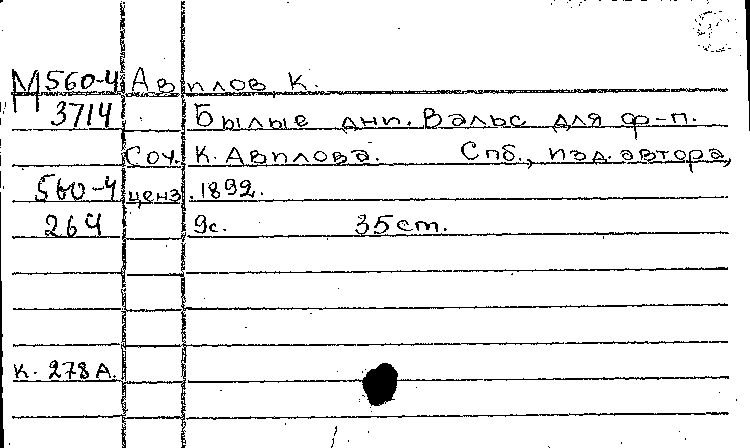 М 560-4 Авилов, К.
3714 Былые дни. Вальс для ф-п.
Соч. К. Авилова. Спб., изд. автора,
560-4 ценз. 1892.
264 9с. 35 ст.
К. 278 А.